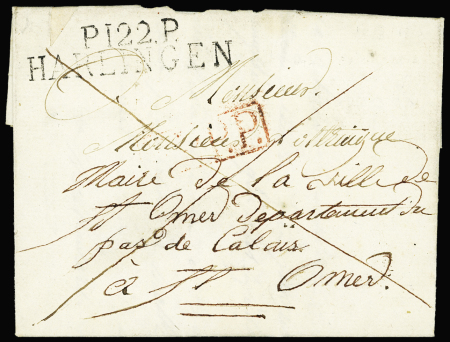 P.122.P.
HARLINGEN
Monsieur.
P.P.
Monsieur
Maire de la Ville de
St Omer Departement du
pas de Calais.
à St Omer.